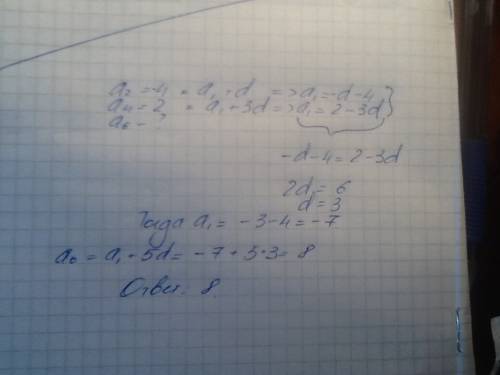 a₂ = -4 = a₁ + d => a₁ = -d - 4
a₄ = 2 = a₁ + 3d => a₁ = 2 - 3d }
a₆ - ?
-d - 4 = 2 - 3d
2d = 6
d = 3
Тогда a₁ = -3 - 4 = -7
a₆ = a₁ + 5d = -7 + 5·3 = 8
Ответ: 8.